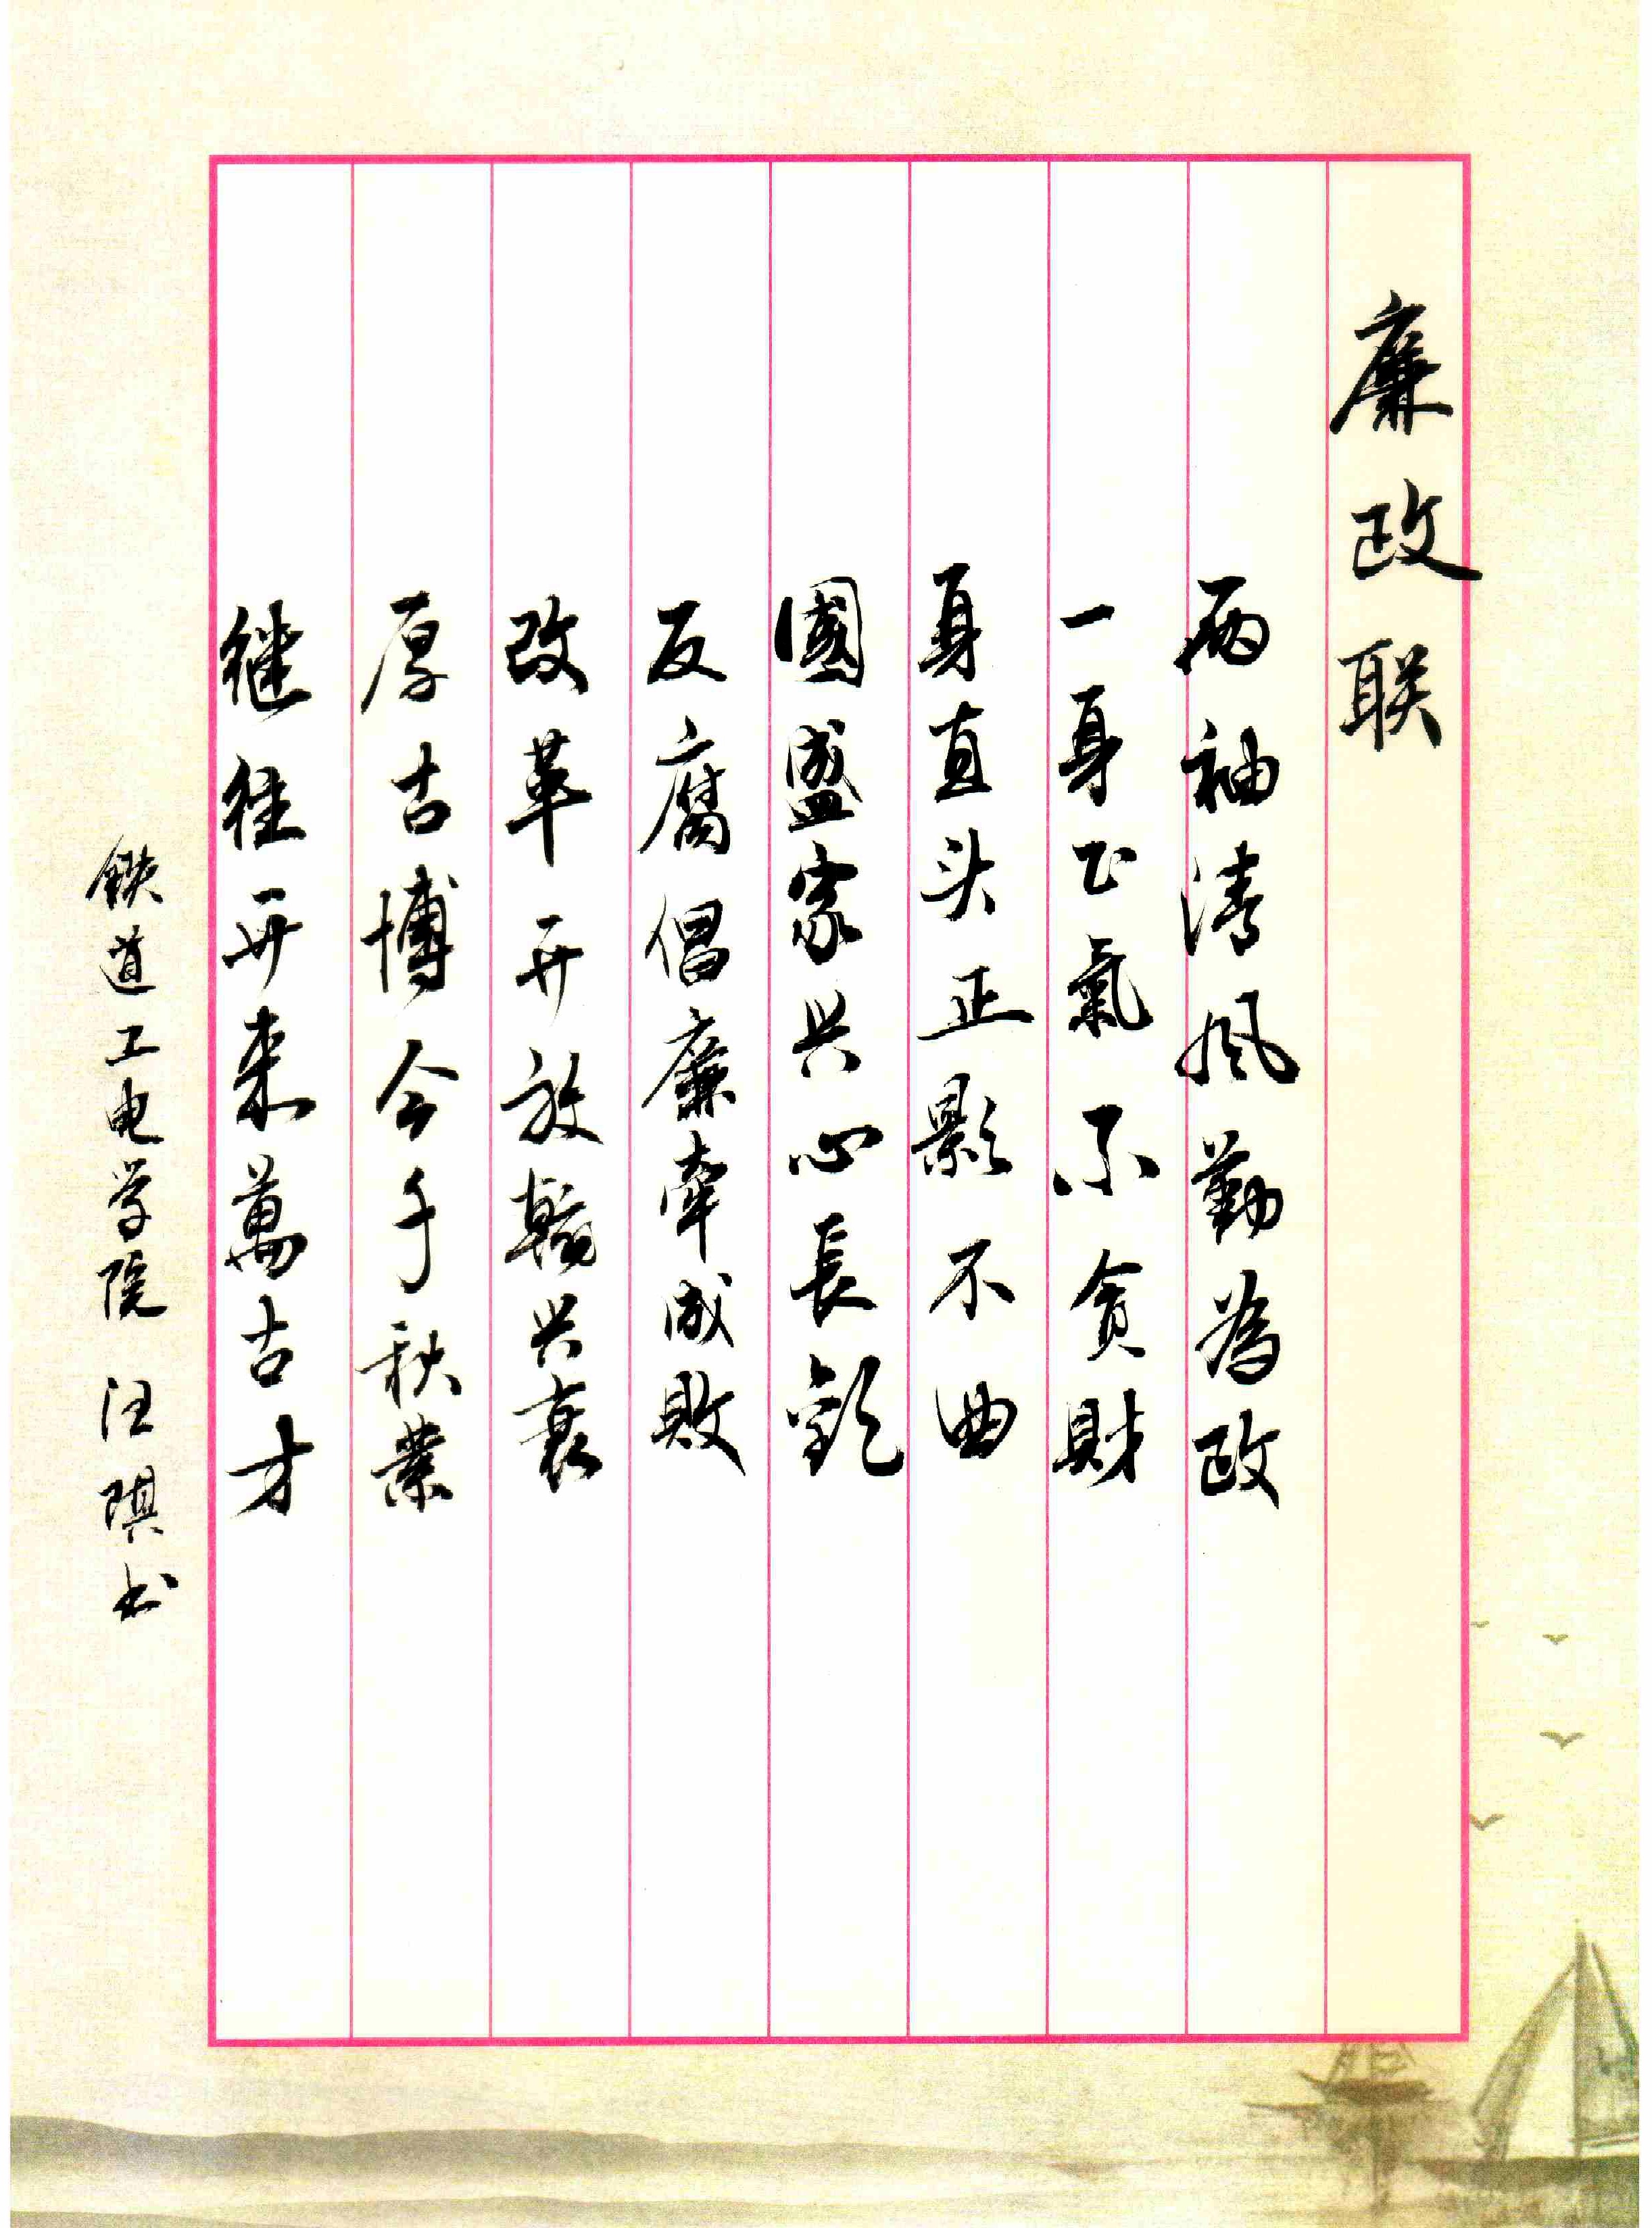 廉政联
两袖清风勤為政
一身正氣不貪財
身直头正影不曲
國盛家兴心長
反腐倡廉牽成敗
改革开放兴衰
厚古博今千秋業
继往开来萬古才
铁道工电学院 汪琪书